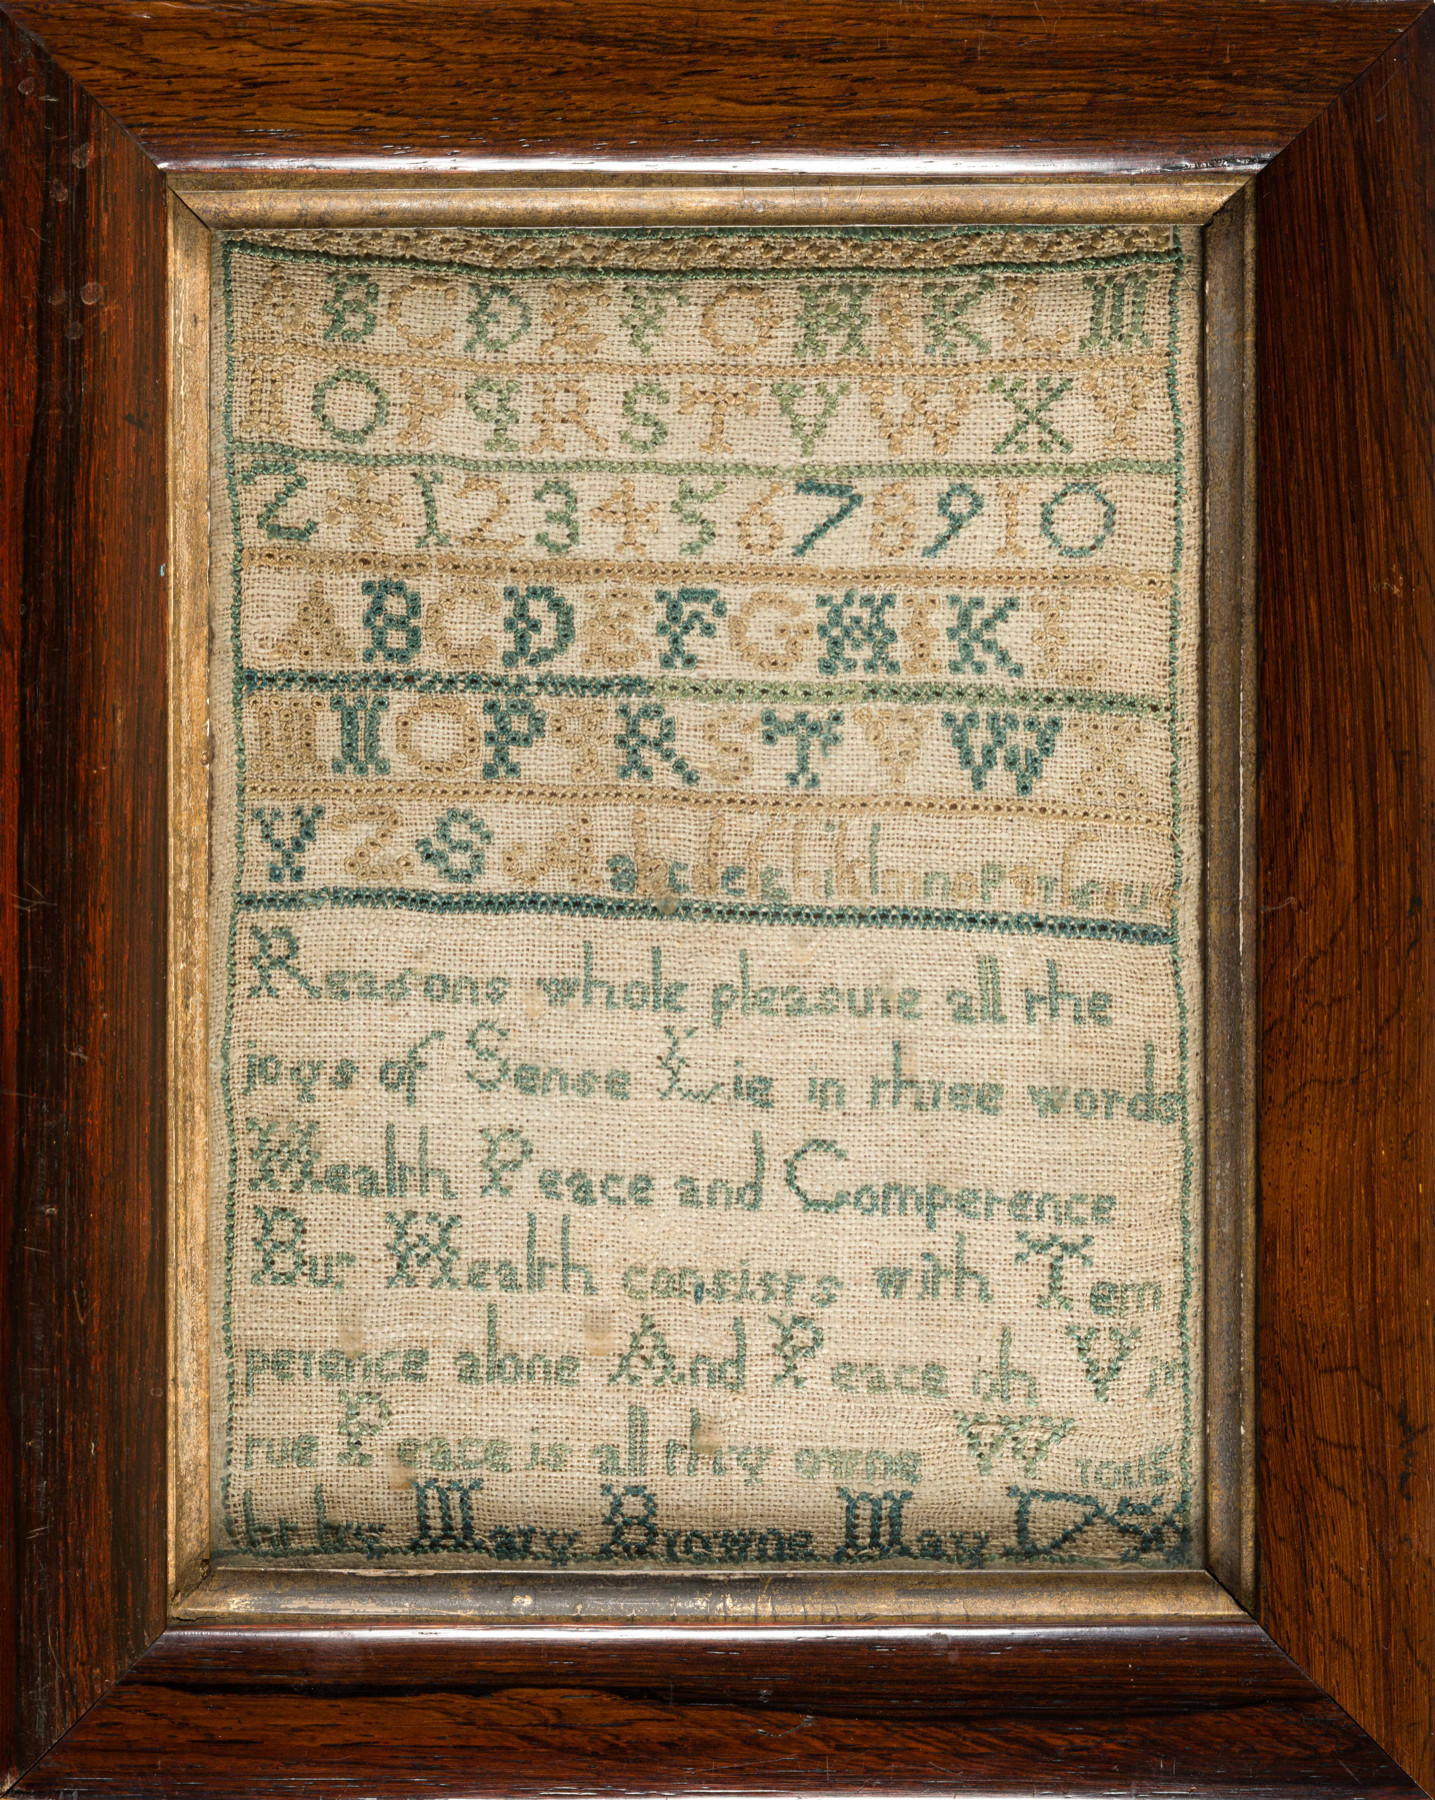 A B C D E F G H I K L M
N O P Q R S T V W X Y
Z 1 2 3 4 5 6 7 8 9 10
A B C D E F G H I K L
M N O P Q R S T V W X
Y Z S A
Reasons whole pleasure all the
joys of Sense Lie in three words
Health Peace and Competence
But Health consists with Tem
perence alone And Peace oh Vir
tue Peace is all thy owne
Mary Browne May 17